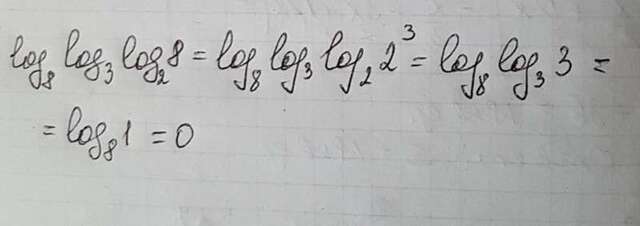 log₈ log₃ log₂ 8 = log₈ log₃ log₂ 2³ = log₈ log₃ 3 =
= log₈ 1 = 0